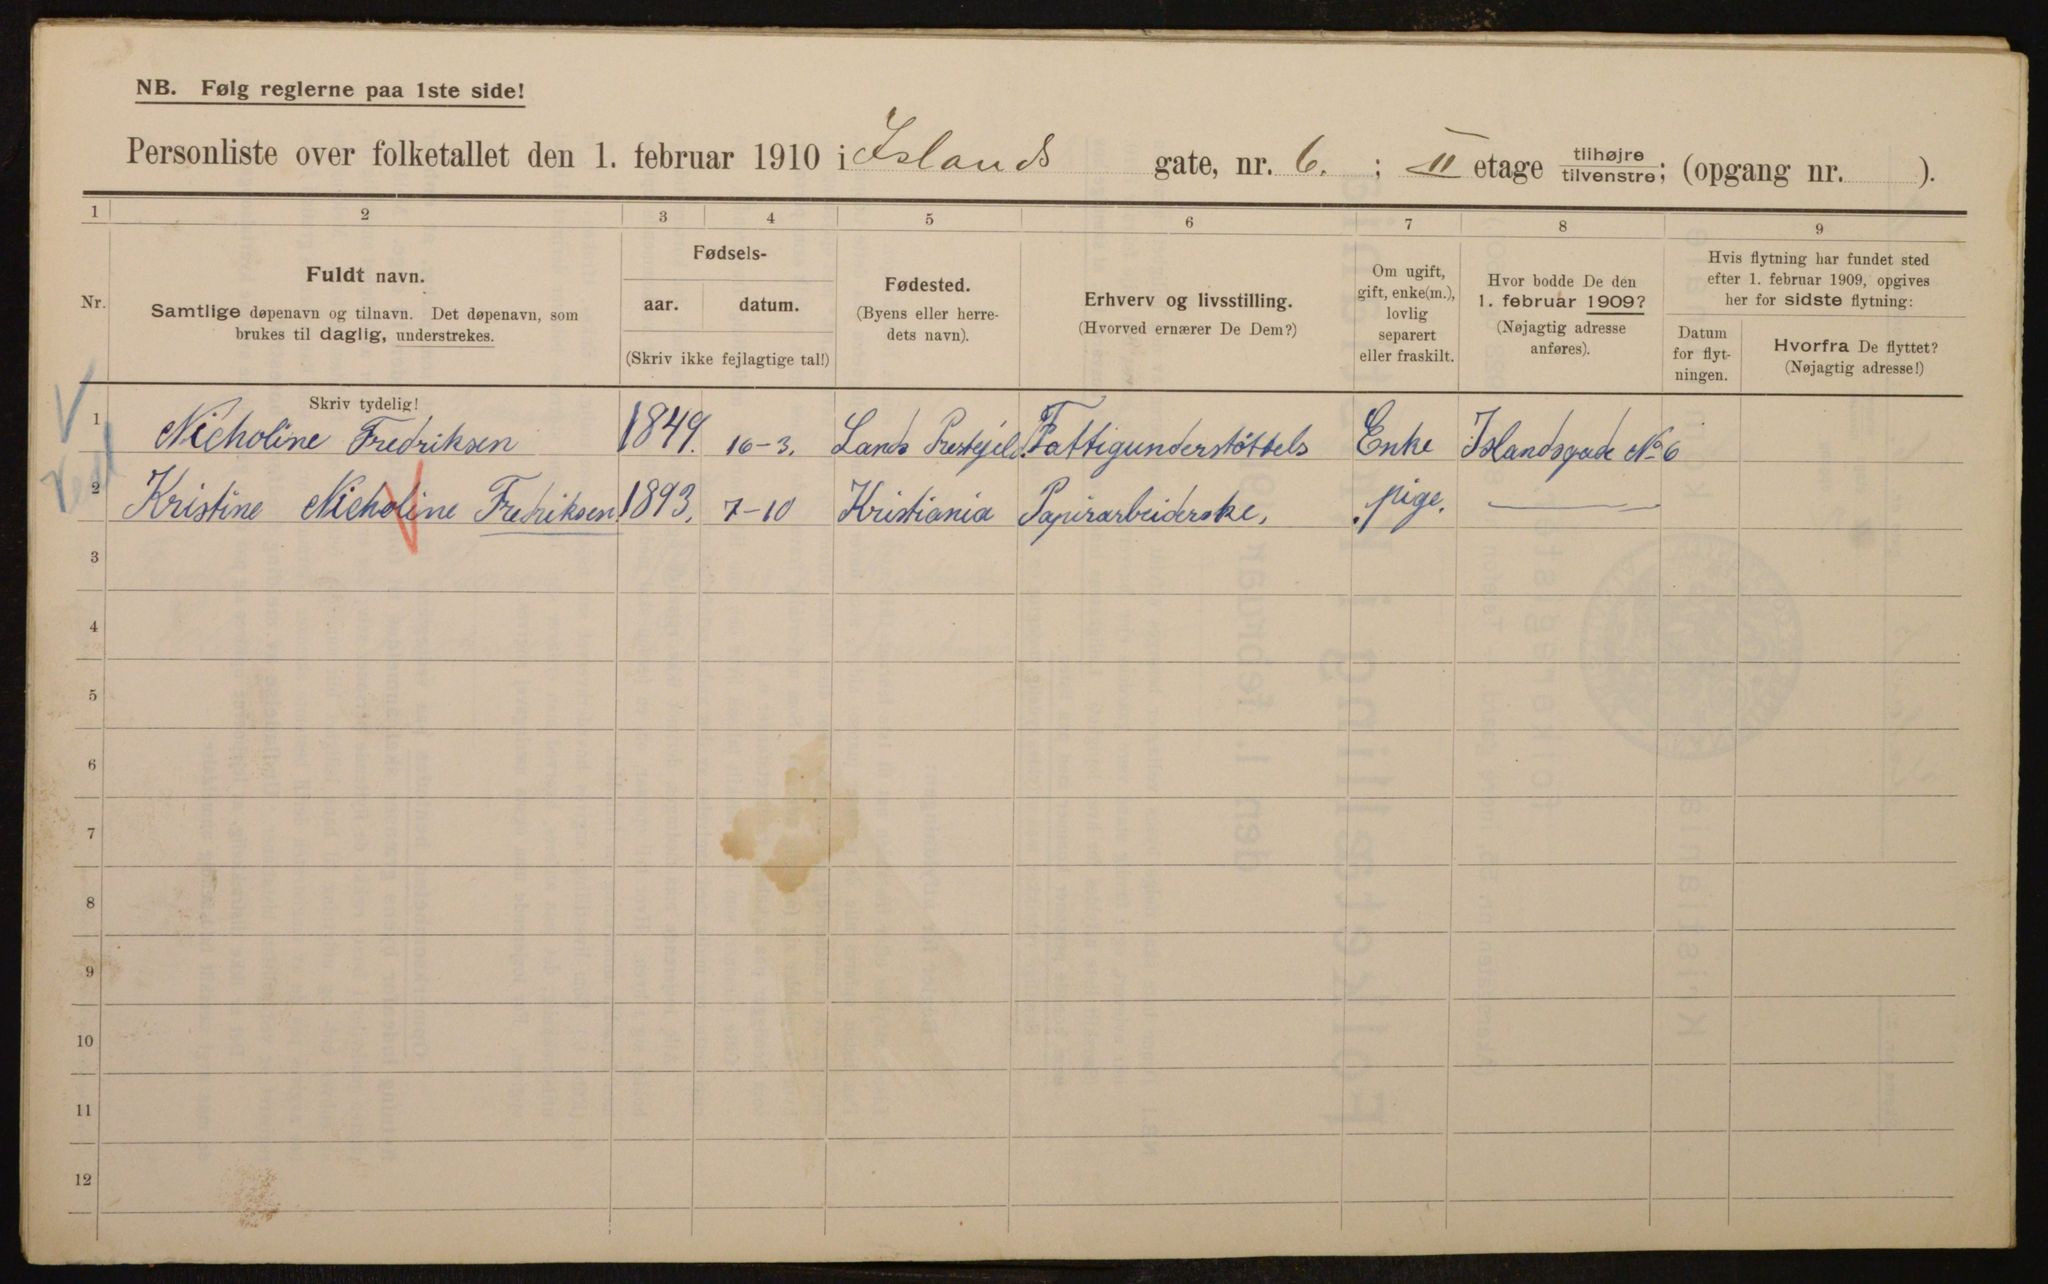 NB. Følg reglerne paa 1ste side!
Personliste over folketallet den 1. februar 1910 i Islands gate, nr. 6. ; II etage tilhøjre tilvenstre; (opgang nr. ).
1 2 3 4 5 6 7 8 9
Nr.
Fuldt navn.
Samtlige døpenavn og tilnavn. Det døpenavn, som
brukes til daglig, understrekes.
Fødsels-
aar. datum.
(Skriv ikke fejlagtige tal!)
Fødested.
(Byens eller herre-
dets navn).
Erhverv og livsstilling.
(Hvorved ernærer De Dem?)
Om ugift,
gift, enke(m.),
lovlig
separert
eller fraskilt.
Hvor bodde De den
1. februar 1909?
(Nøjagtig adresse
anføres).
Hvis flytning har fundet sted
efter 1. februar 1909, opgives
her for sidste flytning:
Datum
for flyt-
ningen.
Hvorfra De flyttet?
(Nøjagtig adresse!)
Skriv tydelig!
1 Nicholine Fredriksen 1849. 16-3. Lands Fattigunderstøttels Enke Islandsgade No 6
2 Kristine Nicholine Fredriksen 1893. 7-10 Kristiania Papirarbeiderske, pige.
3
4
5
6
7
8
9
10
11
12